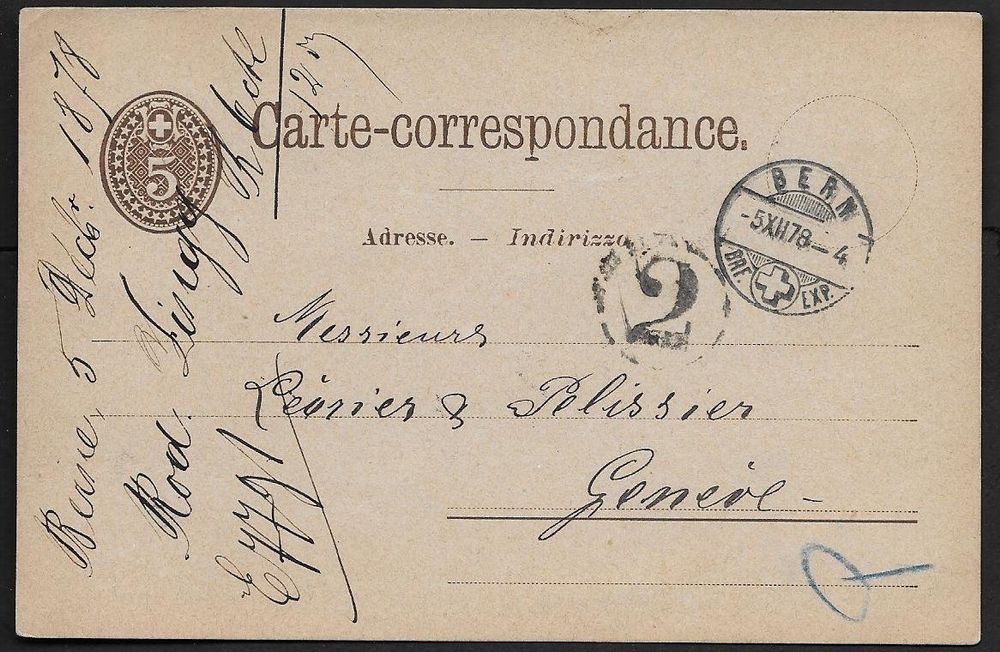 Carte-correspondance.
5
Adresse. — Indirizzo
BERN
-5XII78-4
BRF. EXP.
2
Messieurs
Léonier & Pelissier
Genève -
Berne, 5 Decbr. 1878
Rod.